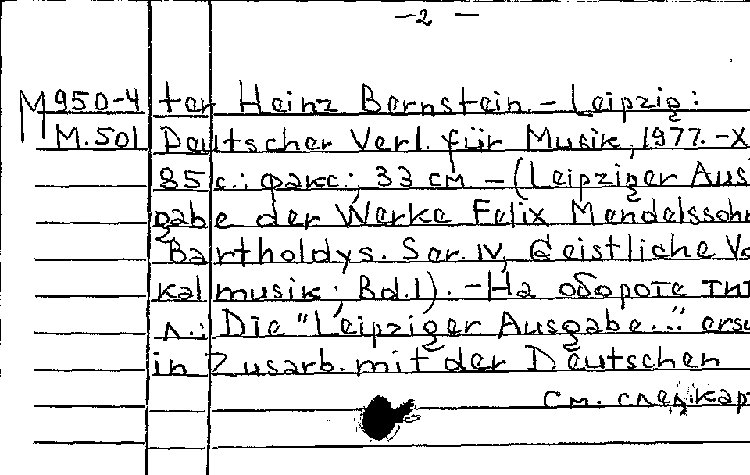 -2-
M950-4 ter Heinz Bernstein. - Leipzig:
M.501 Deutscher Verl. für Musik, 1977. - X
85 с.: факс.; 33 см - (Leipziger Aus
gabe der Werke Felix Mendelssohn
Bartholdys. Ser. IV, Geistliche Vo
kalmusik; Bd.1). - На обороте тит
л.: Die "Leipziger Ausgabe..." ersc
in Zusarb. mit der Deutschen
см. след карт